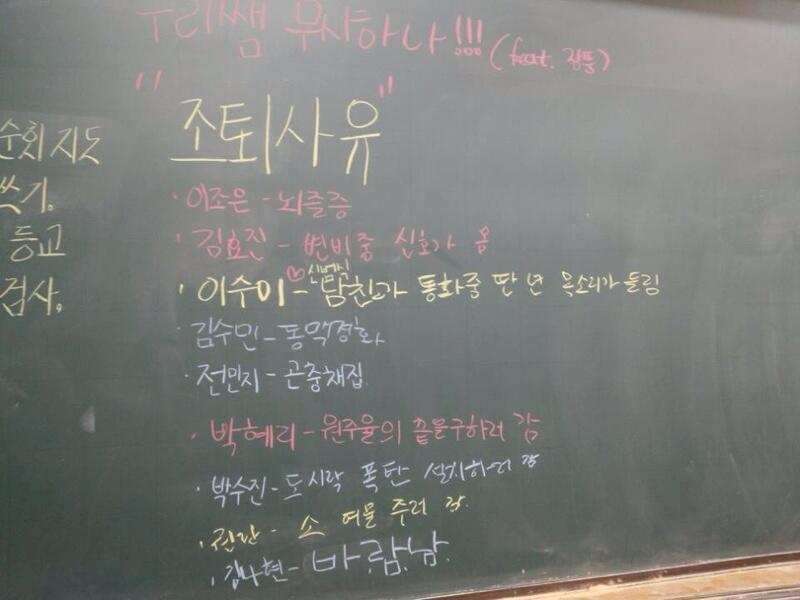 우리쌤 무샤하나!!! (feat. 광뿡)
"조퇴사유"
순회지도
쓰기.
등교
검사.
· 이조은 - 뇌졸증
· 김효진 - 변비중 신호가 옴
신법식
· 이수미 - 남친과 통화중 딴 년 목소리가 들림
· 김수민 - 동맥경화
· 전민지 - 곤충채집
· 박혜리 - 원주율의 끝을구하러 감
· 박수진 - 도시락 폭탄 설치하러 감
· - 소 여물 주러 감
· 김나현 - 바람남